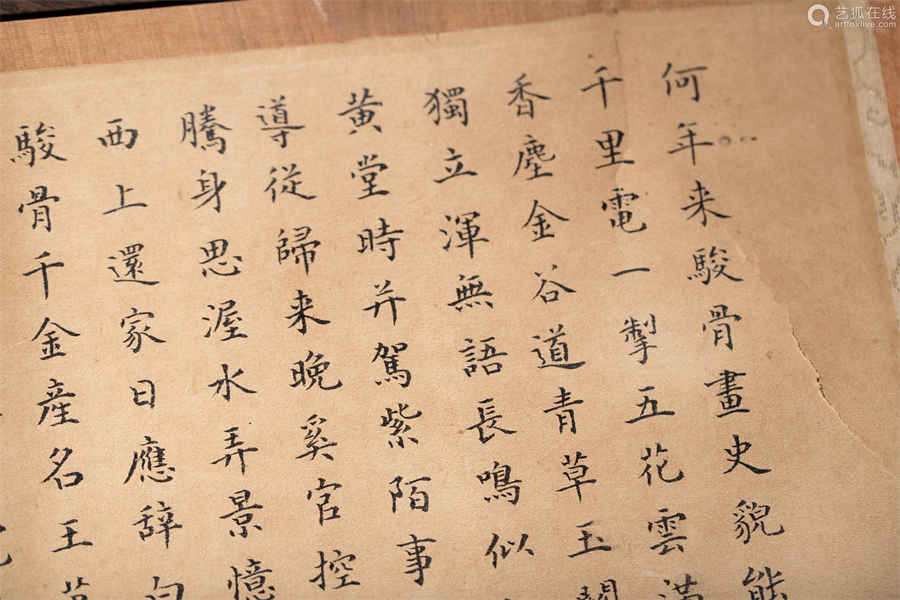 何年来駿骨畫史貌能
千里電一掣五花雲滿
香塵金谷道青草玉關
獨立渾無語長鳴似
黄堂時并駕紫陌事
導從歸来晚奚官控
騰身思渥水弄景憶
西上還家日應辞
駿骨千金産名王
艺狐在线
artfoxlive.com